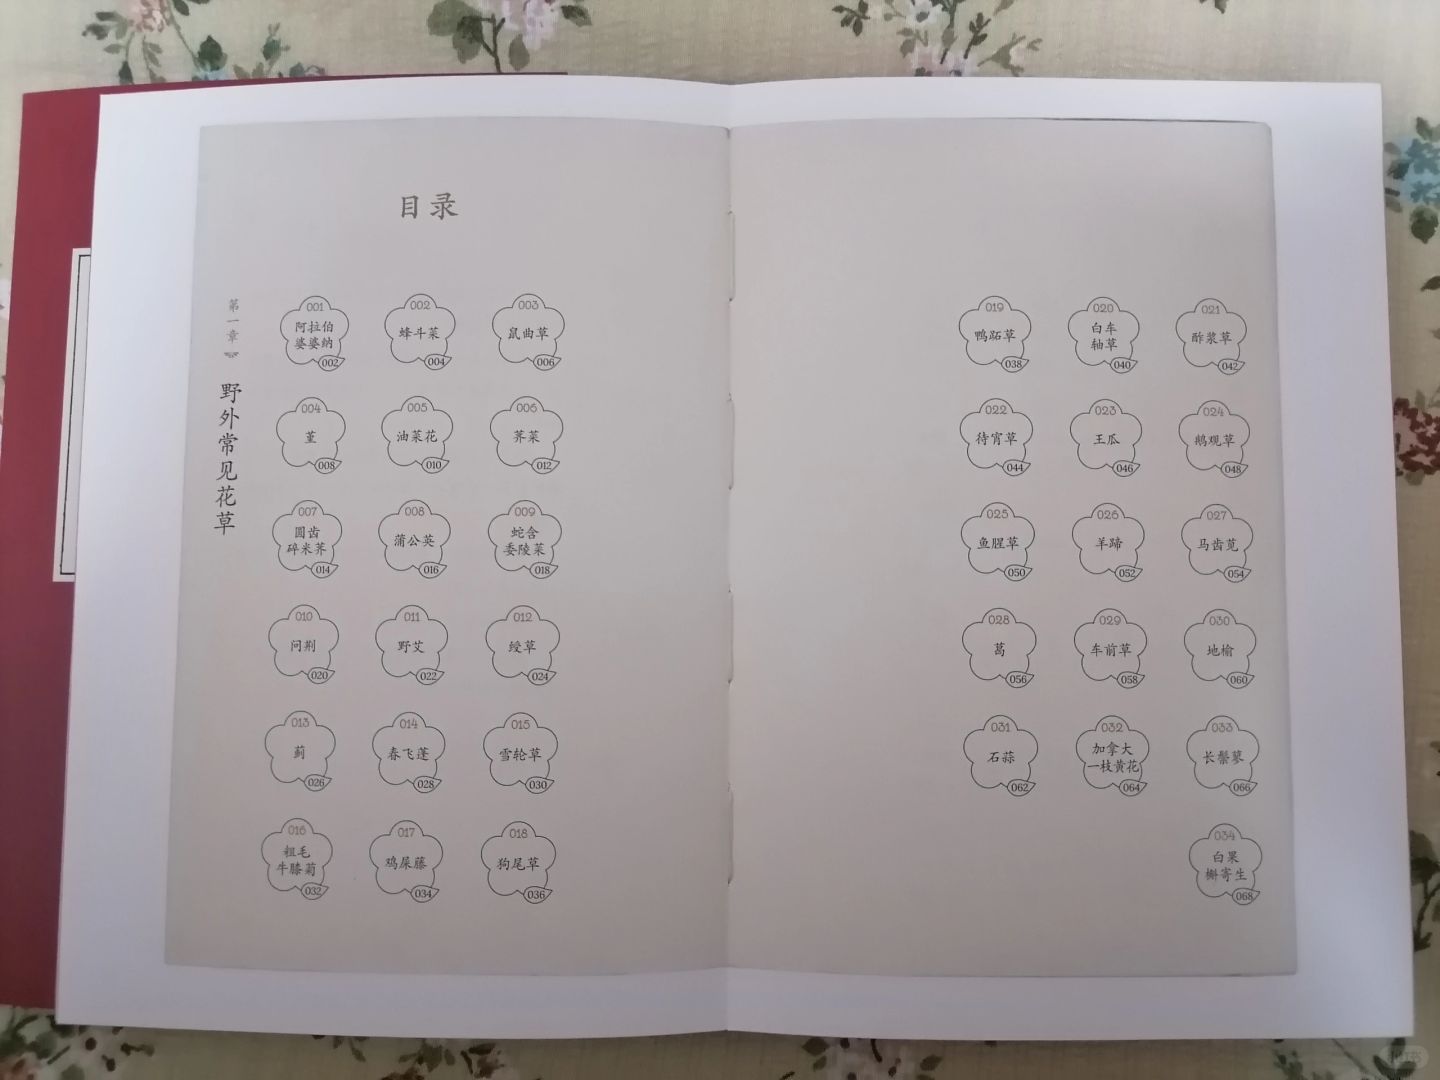 目录
第一章
野外常见花草
001
阿拉伯
婆婆纳
002
002
蜂斗菜
004
003
鼠曲草
006
004
堇
008
005
油菜花
010
006
荠菜
012
007
圆齿
碎米荠
014
008
蒲公英
016
009
蛇含
委陵菜
018
010
问荆
020
011
野艾
022
012
绶草
024
013
蓟
026
014
春飞蓬
028
015
雪轮草
030
016
粗毛
牛膝菊
032
017
鸡屎藤
034
018
狗尾草
036
019
鸭跖草
038
020
白车
轴草
040
021
酢浆草
042
022
待宵草
044
023
王瓜
046
024
鹅观草
048
025
鱼腥草
050
026
羊蹄
052
027
马齿苋
054
028
葛
056
029
车前草
058
030
地榆
060
031
石蒜
062
032
加拿大
一枝黄花
064
033
长鬃蓼
066
034
白果
槲寄生
068